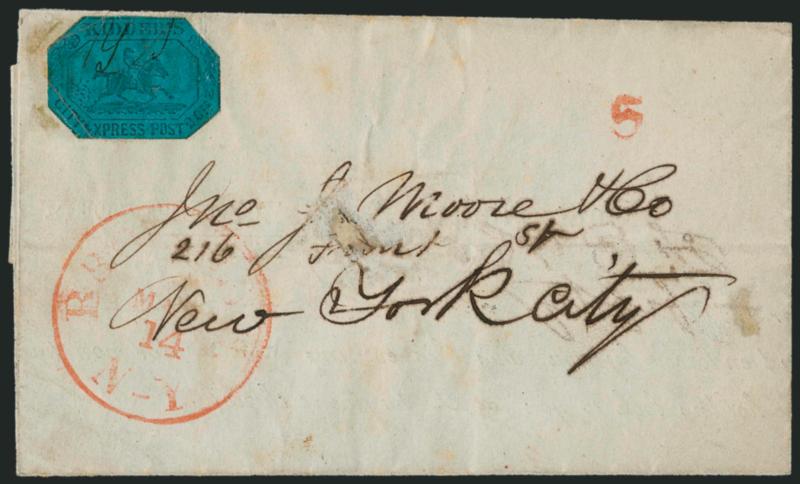 KIDDER'S
CITY EXPRESS POST
5
Jno J Moore & Co
216 Front St
New York City
14
N-Y